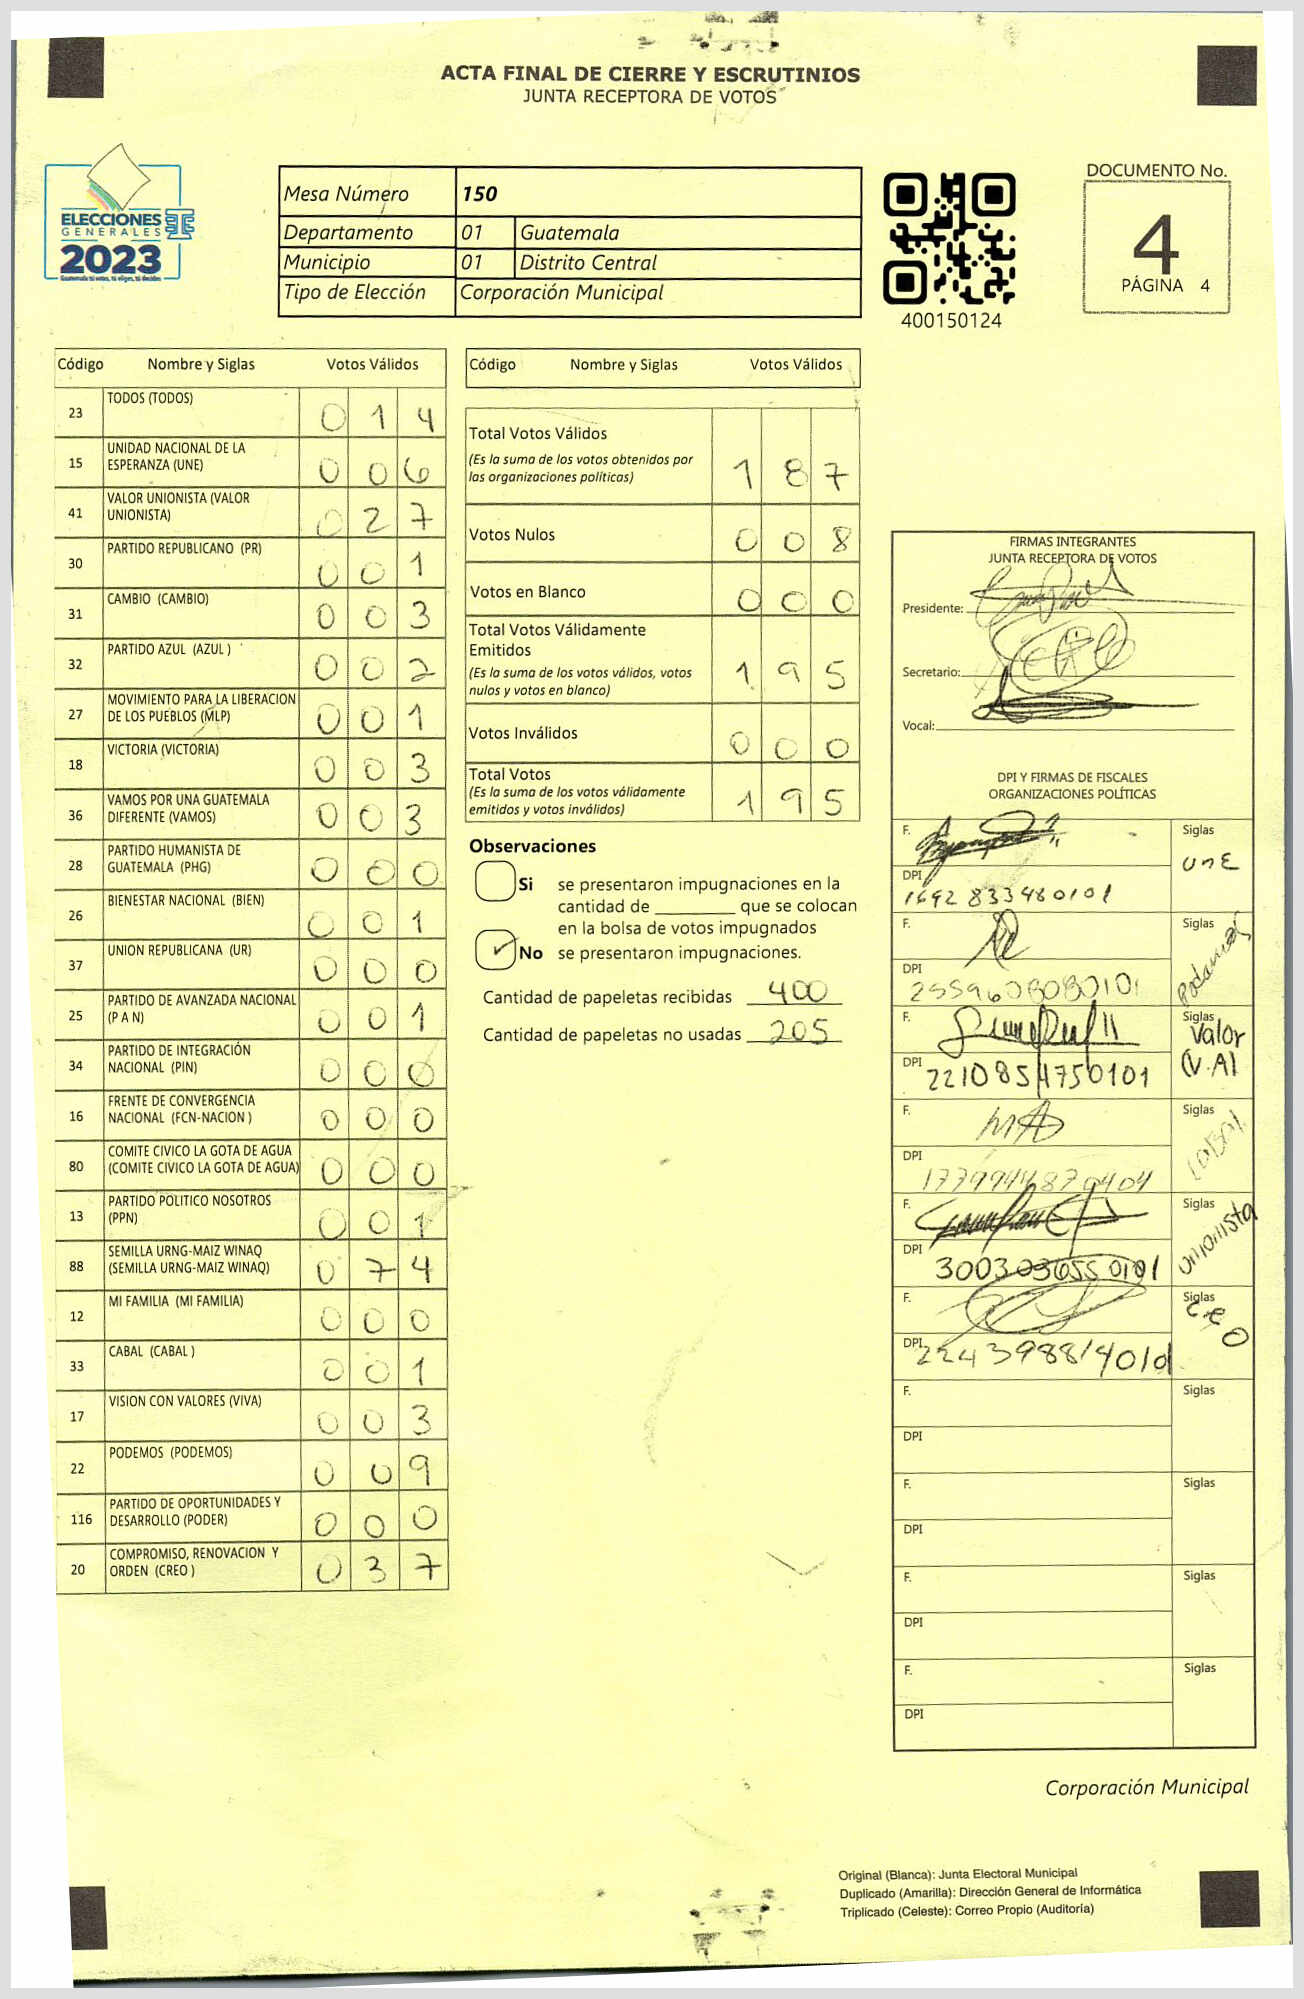 ACTA FINAL DE CIERRE Y ESCRUTINIOS
JUNTA RECEPTORA DE VOTOS
ELECCIONES
GENERALES
2023
Mesa Número 150
Departamento 01 Guatemala
Municipio 01 Distrito Central
Tipo de Elección Corporación Municipal
400150124
DOCUMENTO No.
4
PÁGINA 4
Código Nombre y Siglas Votos Válidos
23 TODOS (TODOS) 0 1 4
15 UNIDAD NACIONAL DE LA
ESPERANZA (UNE) 0 0 6
41 VALOR UNIONISTA (VALOR
UNIONISTA) 0 2 7
30 PARTIDO REPUBLICANO (PR) 0 0 1
31 CAMBIO (CAMBIO) 0 0 3
32 PARTIDO AZUL (AZUL ) 0 0 2
27 MOVIMIENTO PARA LA LIBERACION
DE LOS PUEBLOS (MLP) 0 0 1
18 VICTORIA (VICTORIA) 0 0 3
36 VAMOS POR UNA GUATEMALA
DIFERENTE (VAMOS) 0 0 3
28 PARTIDO HUMANISTA DE
GUATEMALA (PHG) 0 0 0
26 BIENESTAR NACIONAL (BIEN) 0 0 1
37 UNION REPUBLICANA (UR) 0 0 0
25 PARTIDO DE AVANZADA NACIONAL
(P A N) 0 0 1
34 PARTIDO DE INTEGRACIÓN
NACIONAL (PIN) 0 0 0
16 FRENTE DE CONVERGENCIA
NACIONAL (FCN-NACION ) 0 0 0
80 COMITE CIVICO LA GOTA DE AGUA
(COMITE CIVICO LA GOTA DE AGUA) 0 0 0
13 PARTIDO POLITICO NOSOTROS
(PPN) 0 0 1
88 SEMILLA URNG-MAIZ WINAQ
(SEMILLA URNG-MAIZ WINAQ) 0 7 4
12 MI FAMILIA (MI FAMILIA) 0 0 0
33 CABAL (CABAL ) 0 0 1
17 VISION CON VALORES (VIVA) 0 0 3
22 PODEMOS (PODEMOS) 0 0 9
116 PARTIDO DE OPORTUNIDADES Y
DESARROLLO (PODER) 0 0 0
20 COMPROMISO, RENOVACION Y
ORDEN (CREO ) 0 3 7
Código Nombre y Siglas Votos Válidos
Total Votos Válidos
(Es la suma de los votos obtenidos por
las organizaciones políticas) 1 8 7
Votos Nulos 0 0 8
Votos en Blanco 0 0 0
Total Votos Válidamente
Emitidos
(Es la suma de los votos válidos, votos
nulos y votos en blanco) 1 9 5
Votos Inválidos 0 0 0
Total Votos
(Es la suma de los votos válidamente
emitidos y votos inválidos) 1 9 5
Observaciones
Si se presentaron impugnaciones en la
cantidad de ________ que se colocan
en la bolsa de votos impugnados
No se presentaron impugnaciones.
Cantidad de papeletas recibidas 400
Cantidad de papeletas no usadas 205
FIRMAS INTEGRANTES
JUNTA RECEPTORA DE VOTOS
Presidente:
Secretario:
Vocal:
DPI Y FIRMAS DE FISCALES
ORGANIZACIONES POLÍTICAS
F. Siglas
UnE
DPI
1692 833480101
F. Siglas
Podemos
DPI
2559608080101
F. Siglas
Valor
(V.A)
DPI
2210854750101
F. Siglas
DPI
1779944870404
F. Siglas
unionista
DPI
3003036550101
F. Siglas
DPI
F. Siglas
DPI
F. Siglas
DPI
F. Siglas
DPI
F. Siglas
DPI
Corporación Municipal
Original (Blanca): Junta Electoral Municipal
Duplicado (Amarilla): Dirección General de Informática
Triplicado (Celeste): Correo Propio (Auditoría)